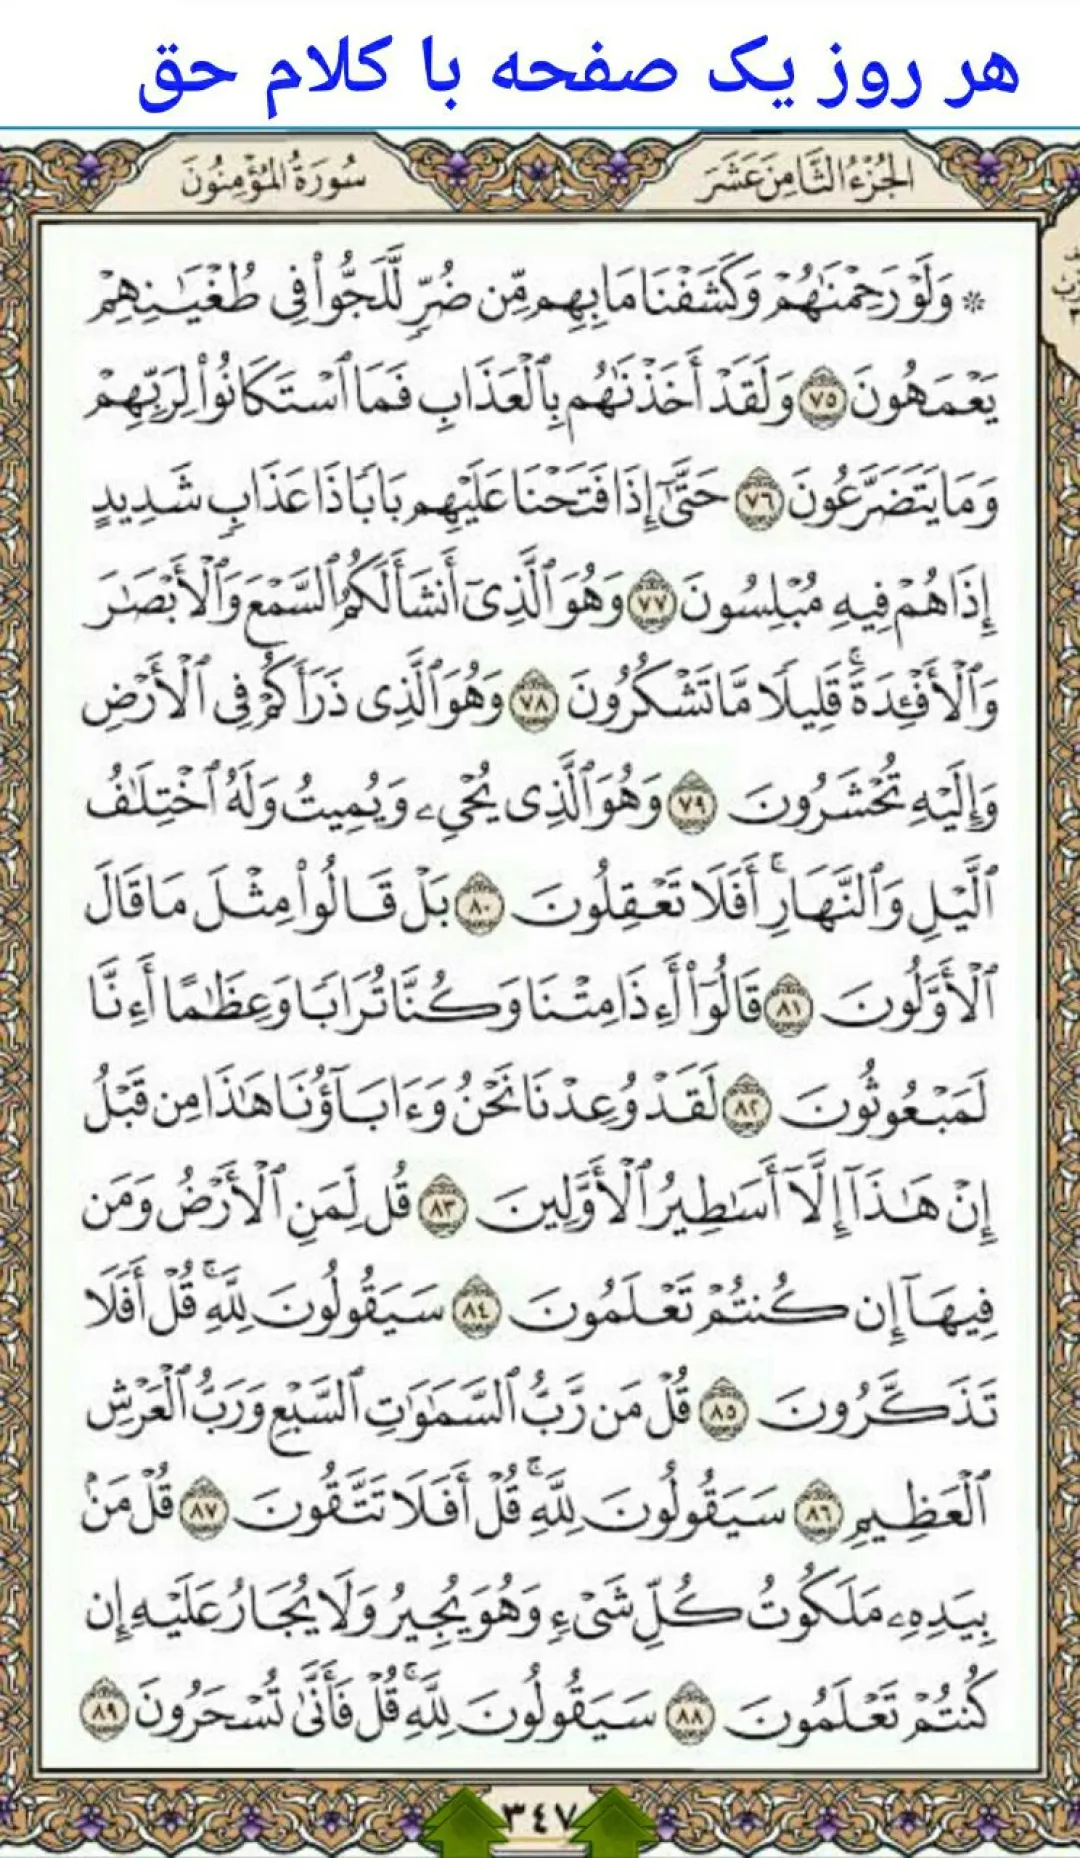 هر روز یک صفحه با کلام حق
الجُزْءُ الثَّامِنَ عَشَرَ
سُورَةُ المُؤْمِنُونَ
۞ وَلَوْ رَحِمْنَٰهُمْ وَكَشَفْنَا مَا بِهِم مِّن ضُرٍّ لَّلَجُّوا۟ فِى طُغْيَٰنِهِمْ
يَعْمَهُونَ ٧٥ وَلَقَدْ أَخَذْنَٰهُم بِٱلْعَذَابِ فَمَا ٱسْتَكَانُوا۟ لِرَبِّهِمْ
وَمَا يَتَضَرَّعُونَ ٧٦ حَتَّىٰٓ إِذَا فَتَحْنَا عَلَيْهِم بَابًا ذَا عَذَابٍ شَدِيدٍ
إِذَا هُمْ فِيهِ مُبْلِسُونَ ٧٧ وَهُوَ ٱلَّذِىٓ أَنشَأَ لَكُمُ ٱلسَّمْعَ وَٱلْأَبْصَٰرَ
وَٱلْأَفْـِٔدَةَ ۚ قَلِيلًا مَّا تَشْكُرُونَ ٧٨ وَهُوَ ٱلَّذِى ذَرَأَكُمْ فِى ٱلْأَرْضِ
وَإِلَيْهِ تُحْشَرُونَ ٧٩ وَهُوَ ٱلَّذِى يُحْىِۦ وَيُمِيتُ وَلَهُ ٱخْتِلَٰفُ
ٱلَّيْلِ وَٱلنَّهَارِ ۚ أَفَلَا تَعْقِلُونَ ٨٠ بَلْ قَالُوا۟ مِثْلَ مَا قَالَ
ٱلْأَوَّلُونَ ٨١ قَالُوٓا۟ أَءِذَا مِتْنَا وَكُنَّا تُرَابًا وَعِظَٰمًا أَءِنَّا
لَمَبْعُوثُونَ ٨٢ لَقَدْ وُعِدْنَا نَحْنُ وَءَابَآؤُنَا هَٰذَا مِن قَبْلُ
إِنْ هَٰذَآ إِلَّآ أَسَٰطِيرُ ٱلْأَوَّلِينَ ٨٣ قُل لِّمَنِ ٱلْأَرْضُ وَمَن
فِيهَآ إِن كُنتُمْ تَعْلَمُونَ ٨٤ سَيَقُولُونَ لِلَّهِ ۚ قُلْ أَفَلَا
تَذَكَّرُونَ ٨٥ قُلْ مَن رَّبُّ ٱلسَّمَٰوَٰتِ ٱلسَّبْعِ وَرَبُّ ٱلْعَرْشِ
ٱلْعَظِيمِ ٨٦ سَيَقُولُونَ لِلَّهِ ۚ قُلْ أَفَلَا تَتَّقُونَ ٨٧ قُلْ مَنۢ
بِيَدِهِۦ مَلَكُوتُ كُلِّ شَىْءٍ وَهُوَ يُجِيرُ وَلَا يُجَارُ عَلَيْهِ إِن
كُنتُمْ تَعْلَمُونَ ٨٨ سَيَقُولُونَ لِلَّهِ ۚ قُلْ فَأَنَّىٰ تُسْحَرُونَ ٨٩
٣٤٧